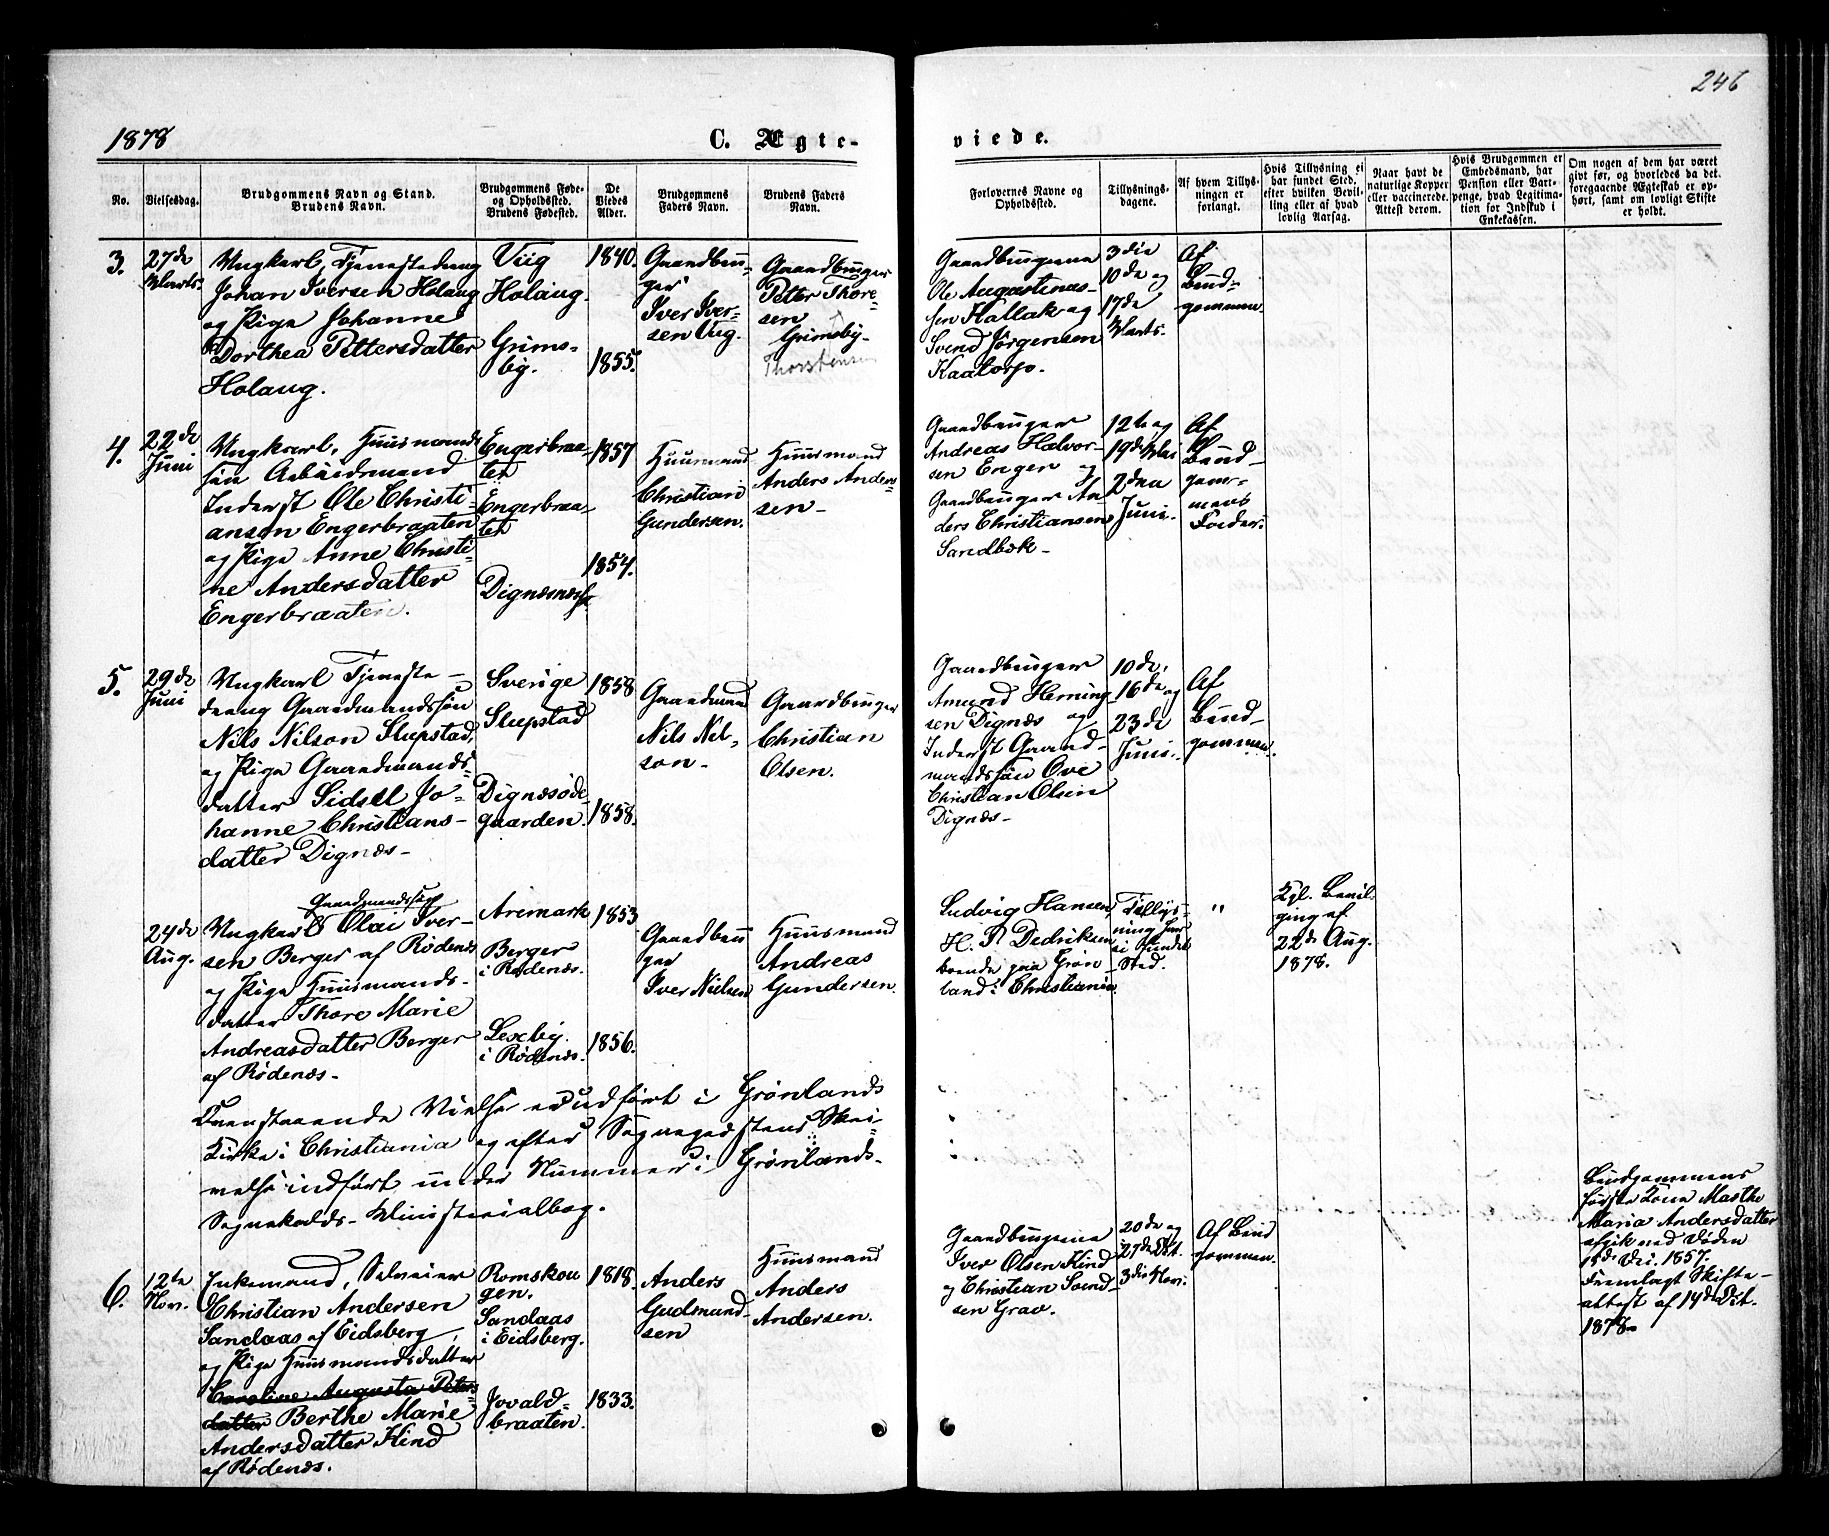 246
1878
C. Ægte-
viede.
No.
Vielsesdag.
Brudgommens Navn og Stand.
Brudens Navn.
Brudgommens Føde-
og Opholdssted.
Brudens Fødested.
De
Viedes
Alder.
Brudgommens
Faders Navn.
Brudens Faders
Navn.
Forlovernes Navne og
Opholdssted.
Tillysnings-
dagene.
Af hvem Tillys-
ningen er
forlangt.
Hvis Tillysning ei
har fundet Sted.
efter hvilken Bevil-
ling eller af hvad
lovlig Aarsag.
Naar havt de
naturlige Kopper
eller vaccinerede.
Attest derom.
Hvis Brudgommen er
Embedsmand, har
Pension eller Vart-
penge, hvad Legitima-
tion for Indskud i
Enkekassen.
Om nogen af dem har været
givt før, og hvorledes da det
foregaaende Ægteskab er op-
hørt, samt om lovligt Skifte
er holdt.
3.
27de
Marts.
Ungkarl, Tjenestedreng
Johan Iversen Holaug
og Pige Johanne
Dorthea Pettersdatter
Holaug.
Viig
Holaug.
Grims-
by.
1840.
1855.
Gaardbru-
ger
Iver Iver-
sen Viig.
Gaardbruger
Petter Thore-
sen
Grimsby-
Thorstensen
Gaardbrugerne
Ole Augustinus-
sen Kallak og
Svend Jørgensen
Kaatorp.
3die
10de og
17de
Marts.
Af
Brud-
gommen.
4.
22de
Juni
Ungkarl, Huusmands
søn Arbeidsmand
Inderst Ole Christi-
ansen Engerbraaten
og Pige Anne Christi-
ne Andersdatter
Engerbraaten.
Engerbraa-
tet
Engerbraa-
tet
Dignæs
1857
1854.
Huusmand
Christian
Gundersen.
Huusmand
Anders Anders-
sen-
Gaardbruger
Andreas Halvor-
sen Enger og
Gaardbruger An
ders Christiansen
Sandbæk-
12te og
19de Mai
2den
Juni.
Af
Brud-
gom-
mens
Fader.
5.
29de
Juni
Ungkarl Tjeneste-
dreng Gaardmandssøn
Nils Nilson Slupstad,
og Pige Gaardmands-
datter Sidsel Jo-
hanne Christians-
datter Dignæs-
Sverige
Slupstad
Dignæsøde-
gaarden.
1858
1858.
Gaardmand
Nils Nil-
son-
Gaardbruger
Christian
Olsen.
Gaardbruger
Amund Herning-
sen Dignæs og
Inderst Gaard-
mandssøn Ove
Christian Olsen
Dignæs-
10de,
16de og
23de
Juni.
Af
Brud-
gommen.
24de
Aug.
Gaardmandssøn
Ungkarl Olai Iver-
sen Berger af Rødenæs
og Pige Huusmands-
datter Thore Marie
Andreasdatter Berger
af Rødenæs-
Aremark
Berger
i Rødenæs.
Lexby
i Rødenæs.
1853
1856.
Gaardbru
ger
Iver Nielsen
Huusmand
Andreas
Gundersen.
Ludvig Hansen,
H. P. Dedriksen
boende paa Grøn-
land i Christiania
Tillys-
ning har
ei fundet
Sted.
"
Kgl. Bevil-
ging af
22de Aug.
1878.
Foranstaaende Vielse er udført i Grønlands
Kirke i Christiania og efter Sognepræstens Skri-
velse indført under Nummer i Grønlands-
Sognekalds- Ministerialbog.
6.
12te
Nov.
Enkemand, Selveier
Christian Andersen
Sandaas af Eidsberg,
og Pige Huusmandsdatter
Caroline Augusta Peters
datter Berthe Marie
Andersdatter Kind
af Rødenæs.
Romskou
gen.
Sandaas
i Eidsberg.
Jovald-
braaten.
1818.
1833.
Anders
Gudmund-
sen
Huusmand
Anders
Andersen.
Gaardbrugerne
Iver Olsen Kind
og Christian Svend-
sen Grav.
20de og
27de Oct.
3die Nov.
Af Brud
gommen.
Brudgommens
første Kone Marthe
Maria Andersdatter
afgik ved Døden
1857.
Fremlagt Skifte-
attest af 14de Oct.
1878